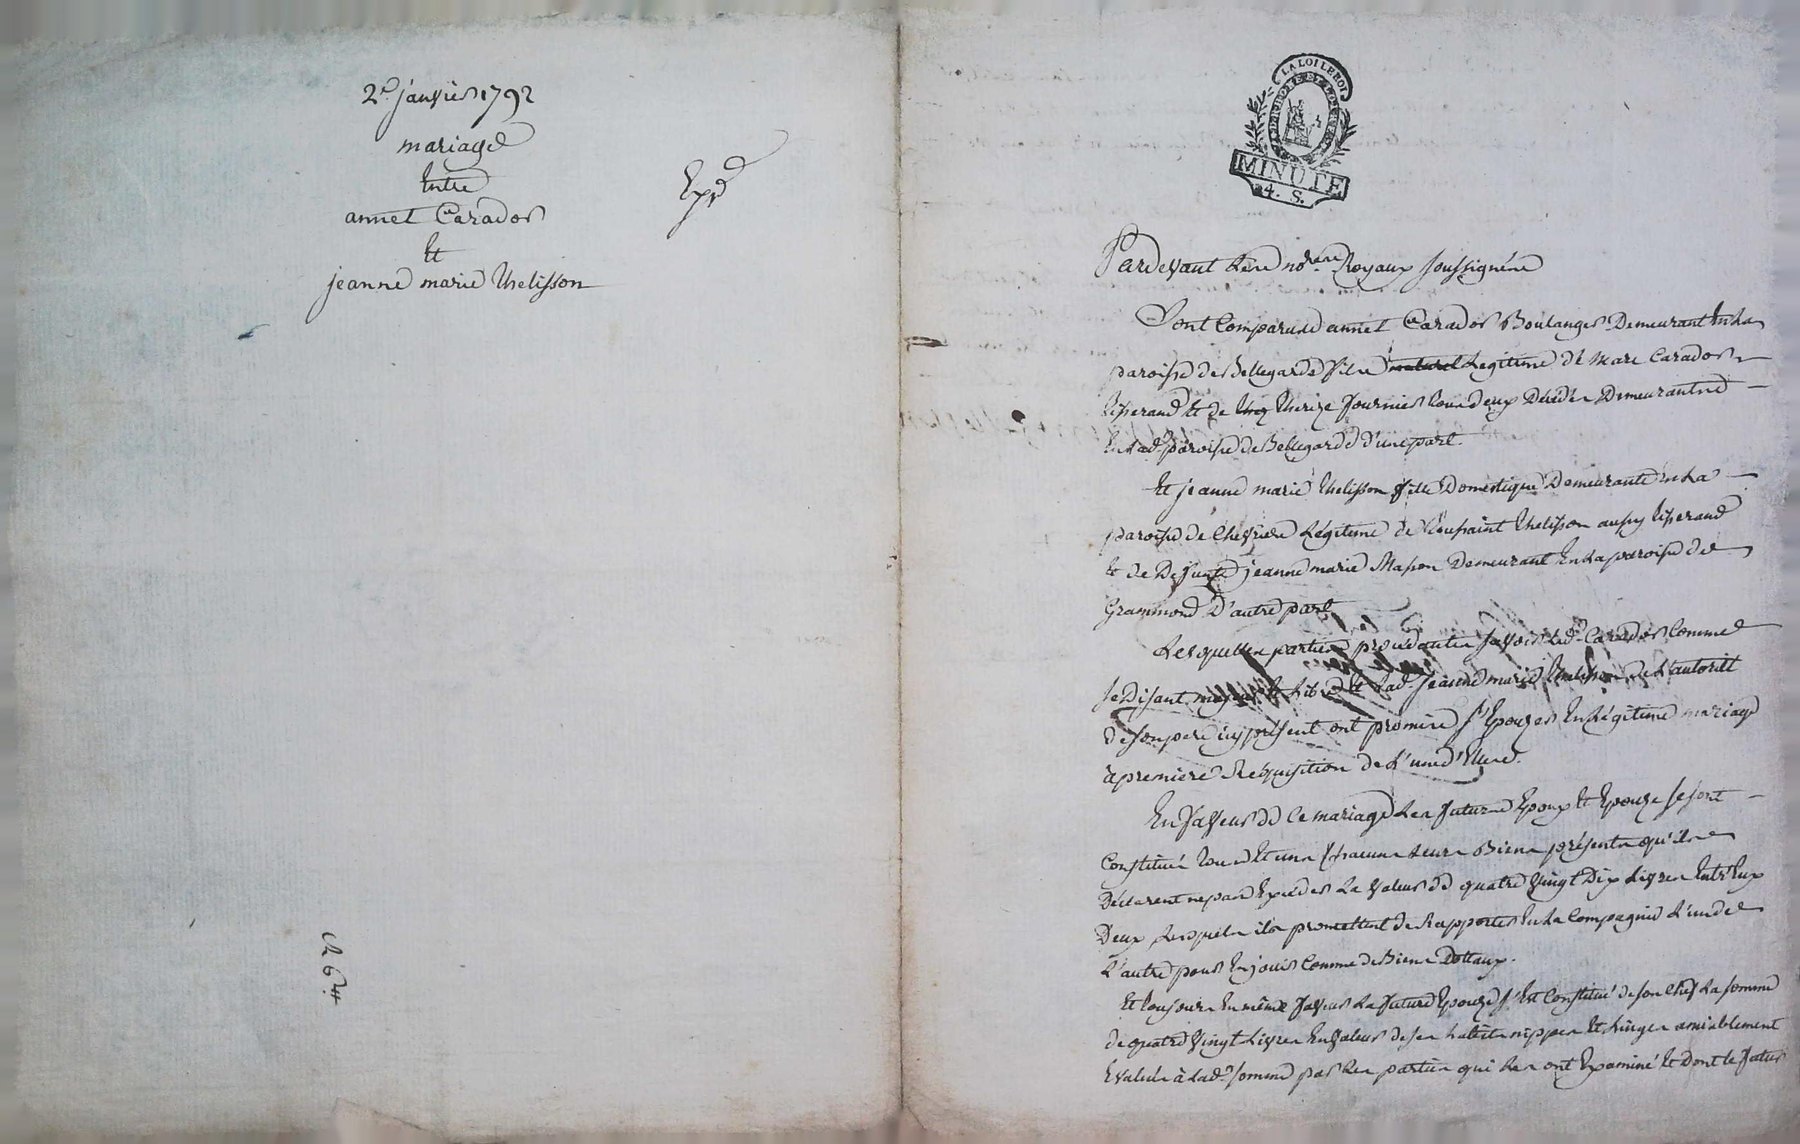 2e janvier 1792
mariage
Entre
annet Carador
Et
jeanne marie thelisson
Expd
LA LOI LE ROI
MINUTE
4. S.
Pardevant Les nores Royaux soussignés
Sont Comparus annet Carador Boulanger Demeurant En La
paroisse de Bellegarde fils naturel Legitime de Marc Carador
tisserand Et de therize fournier tous deux Décédés Demeurant
En Lad. paroisse de Bellegarde d'une part.
Et jeanne marie thelisson fille Domestique Demeurante En La
paroisse de Chevrieres Légitime de toussaint thelisson aussy tisserand
Et de Defunte jeanne marie Masson Demeurant En La paroisse de
Grammond D'autre part
Lesquelles parties procédantes savoir Led. Carador Comme
se Disant majeur Et Libre Et Lad. jeanne marie thelisson de L'autorité
de son pere icy présent ont promis s'Epouzer En Légitime mariage
à premiere Réquisition de L'un d'Eux.
En faveur de Ce mariage Les futurs Epoux Et Epouze se sont
Constitués tous Et uns Chacuns Leurs Biens présents qu'ils
Déclarent ne pas Excéder La valeur de quatre vingt Dix Livres Entr'Eux
Deux Lesquels ils promettent de Rapporter En La Compagnie L'un de
L'autre pour En jouir Comme de Biens Dottaux.
Et toujours En même faveur La future Epouze s'Est Constitué de son Chef La somme
de quatre vingt Livres En valeur de ses habits nippes Et Linges amiablement
Evalués à Lad. somme par Les parties qui Les ont Examiné Et Dont le futur